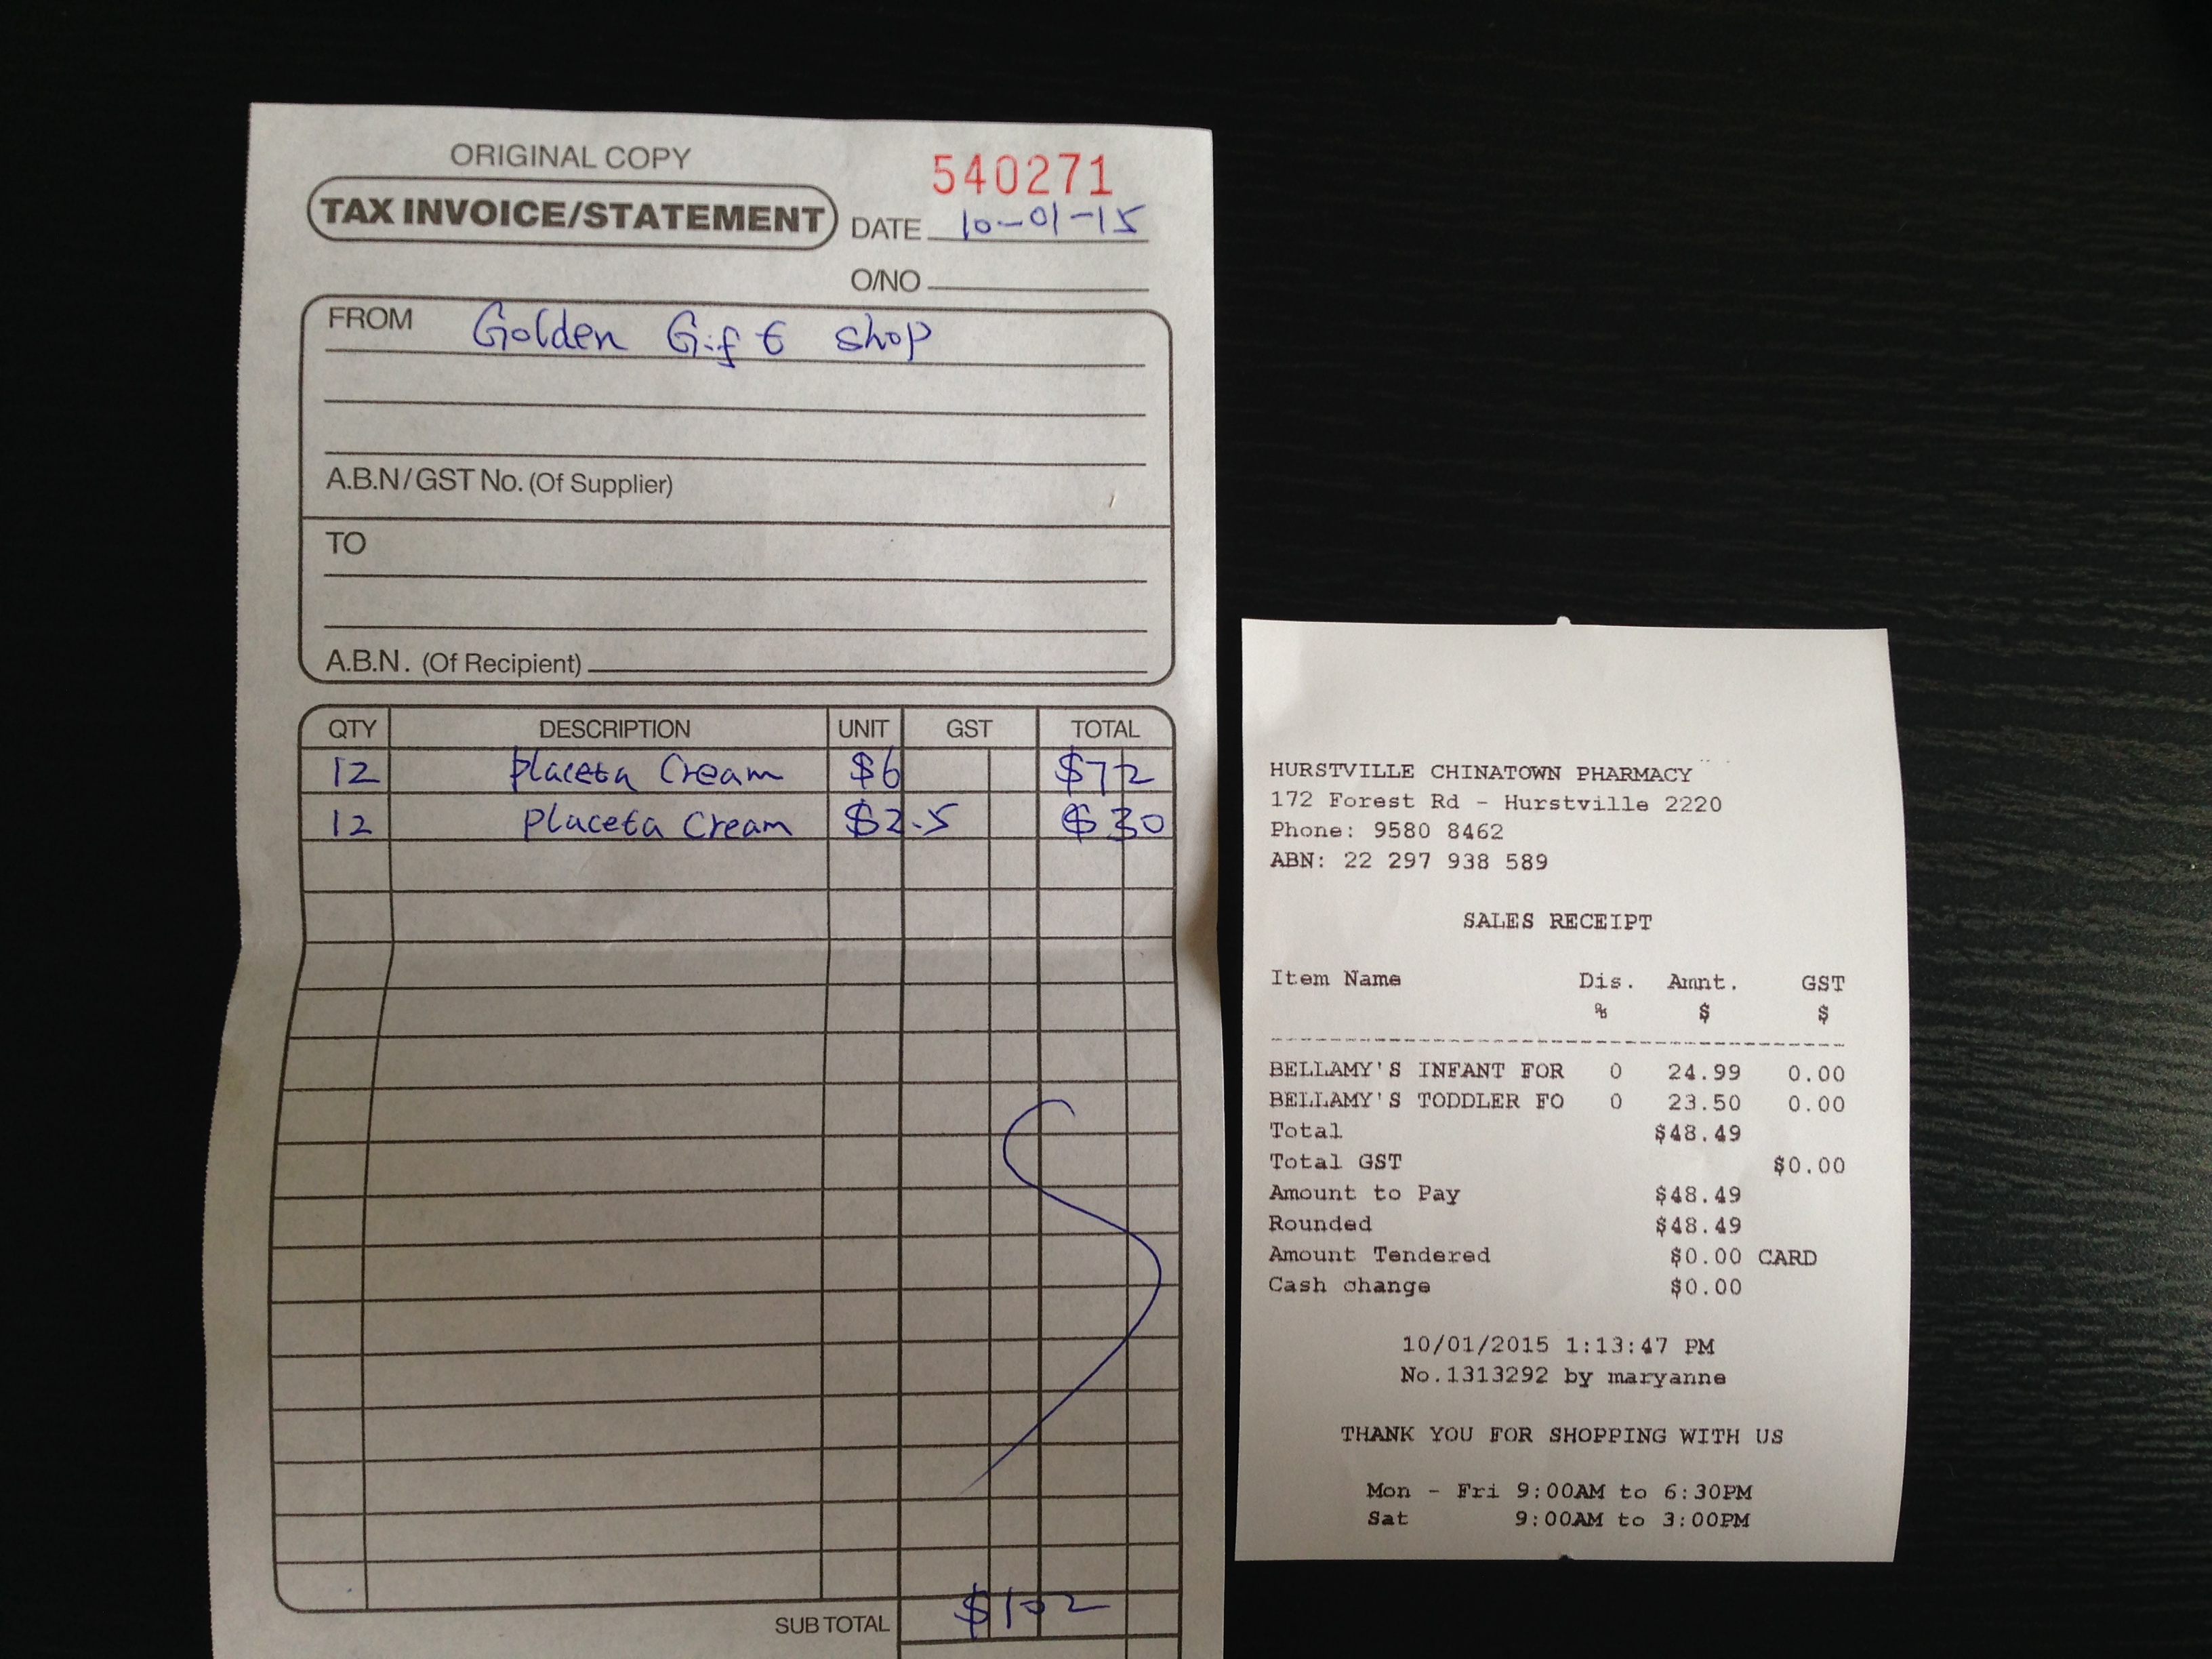 ORIGINAL COPY
540271
TAX INVOICE/STATEMENT DATE 10-01-15
O/NO
FROM Golden Gift shop
A.B.N/GST No. (Of Supplier)
TO
A.B.N. (Of Recipient)
QTY DESCRIPTION UNIT GST TOTAL
12 placeta Cream $6 $72
12 placeta Cream $2.5 $30
SUBTOTAL $102
HURSTVILLE CHINATOWN PHARMACY
172 Forest Rd - Hurstville 2220
Phone: 9580 8462
ABN: 22 297 938 589
SALES RECEIPT
Item Name Dis. Amnt. GST
% $ $
BELLAMY'S INFANT FOR 0 24.99 0.00
BELLAMY'S TODDLER FO 0 23.50 0.00
Total $48.49
Total GST $0.00
Amount to Pay $48.49
Rounded $48.49
Amount Tendered $0.00 CARD
Cash change $0.00
10/01/2015 1:13:47 PM
No.1313292 by maryanne
THANK YOU FOR SHOPPING WITH US
Mon - Fri 9:00AM to 6:30PM
Sat 9:00AM to 3:00PM